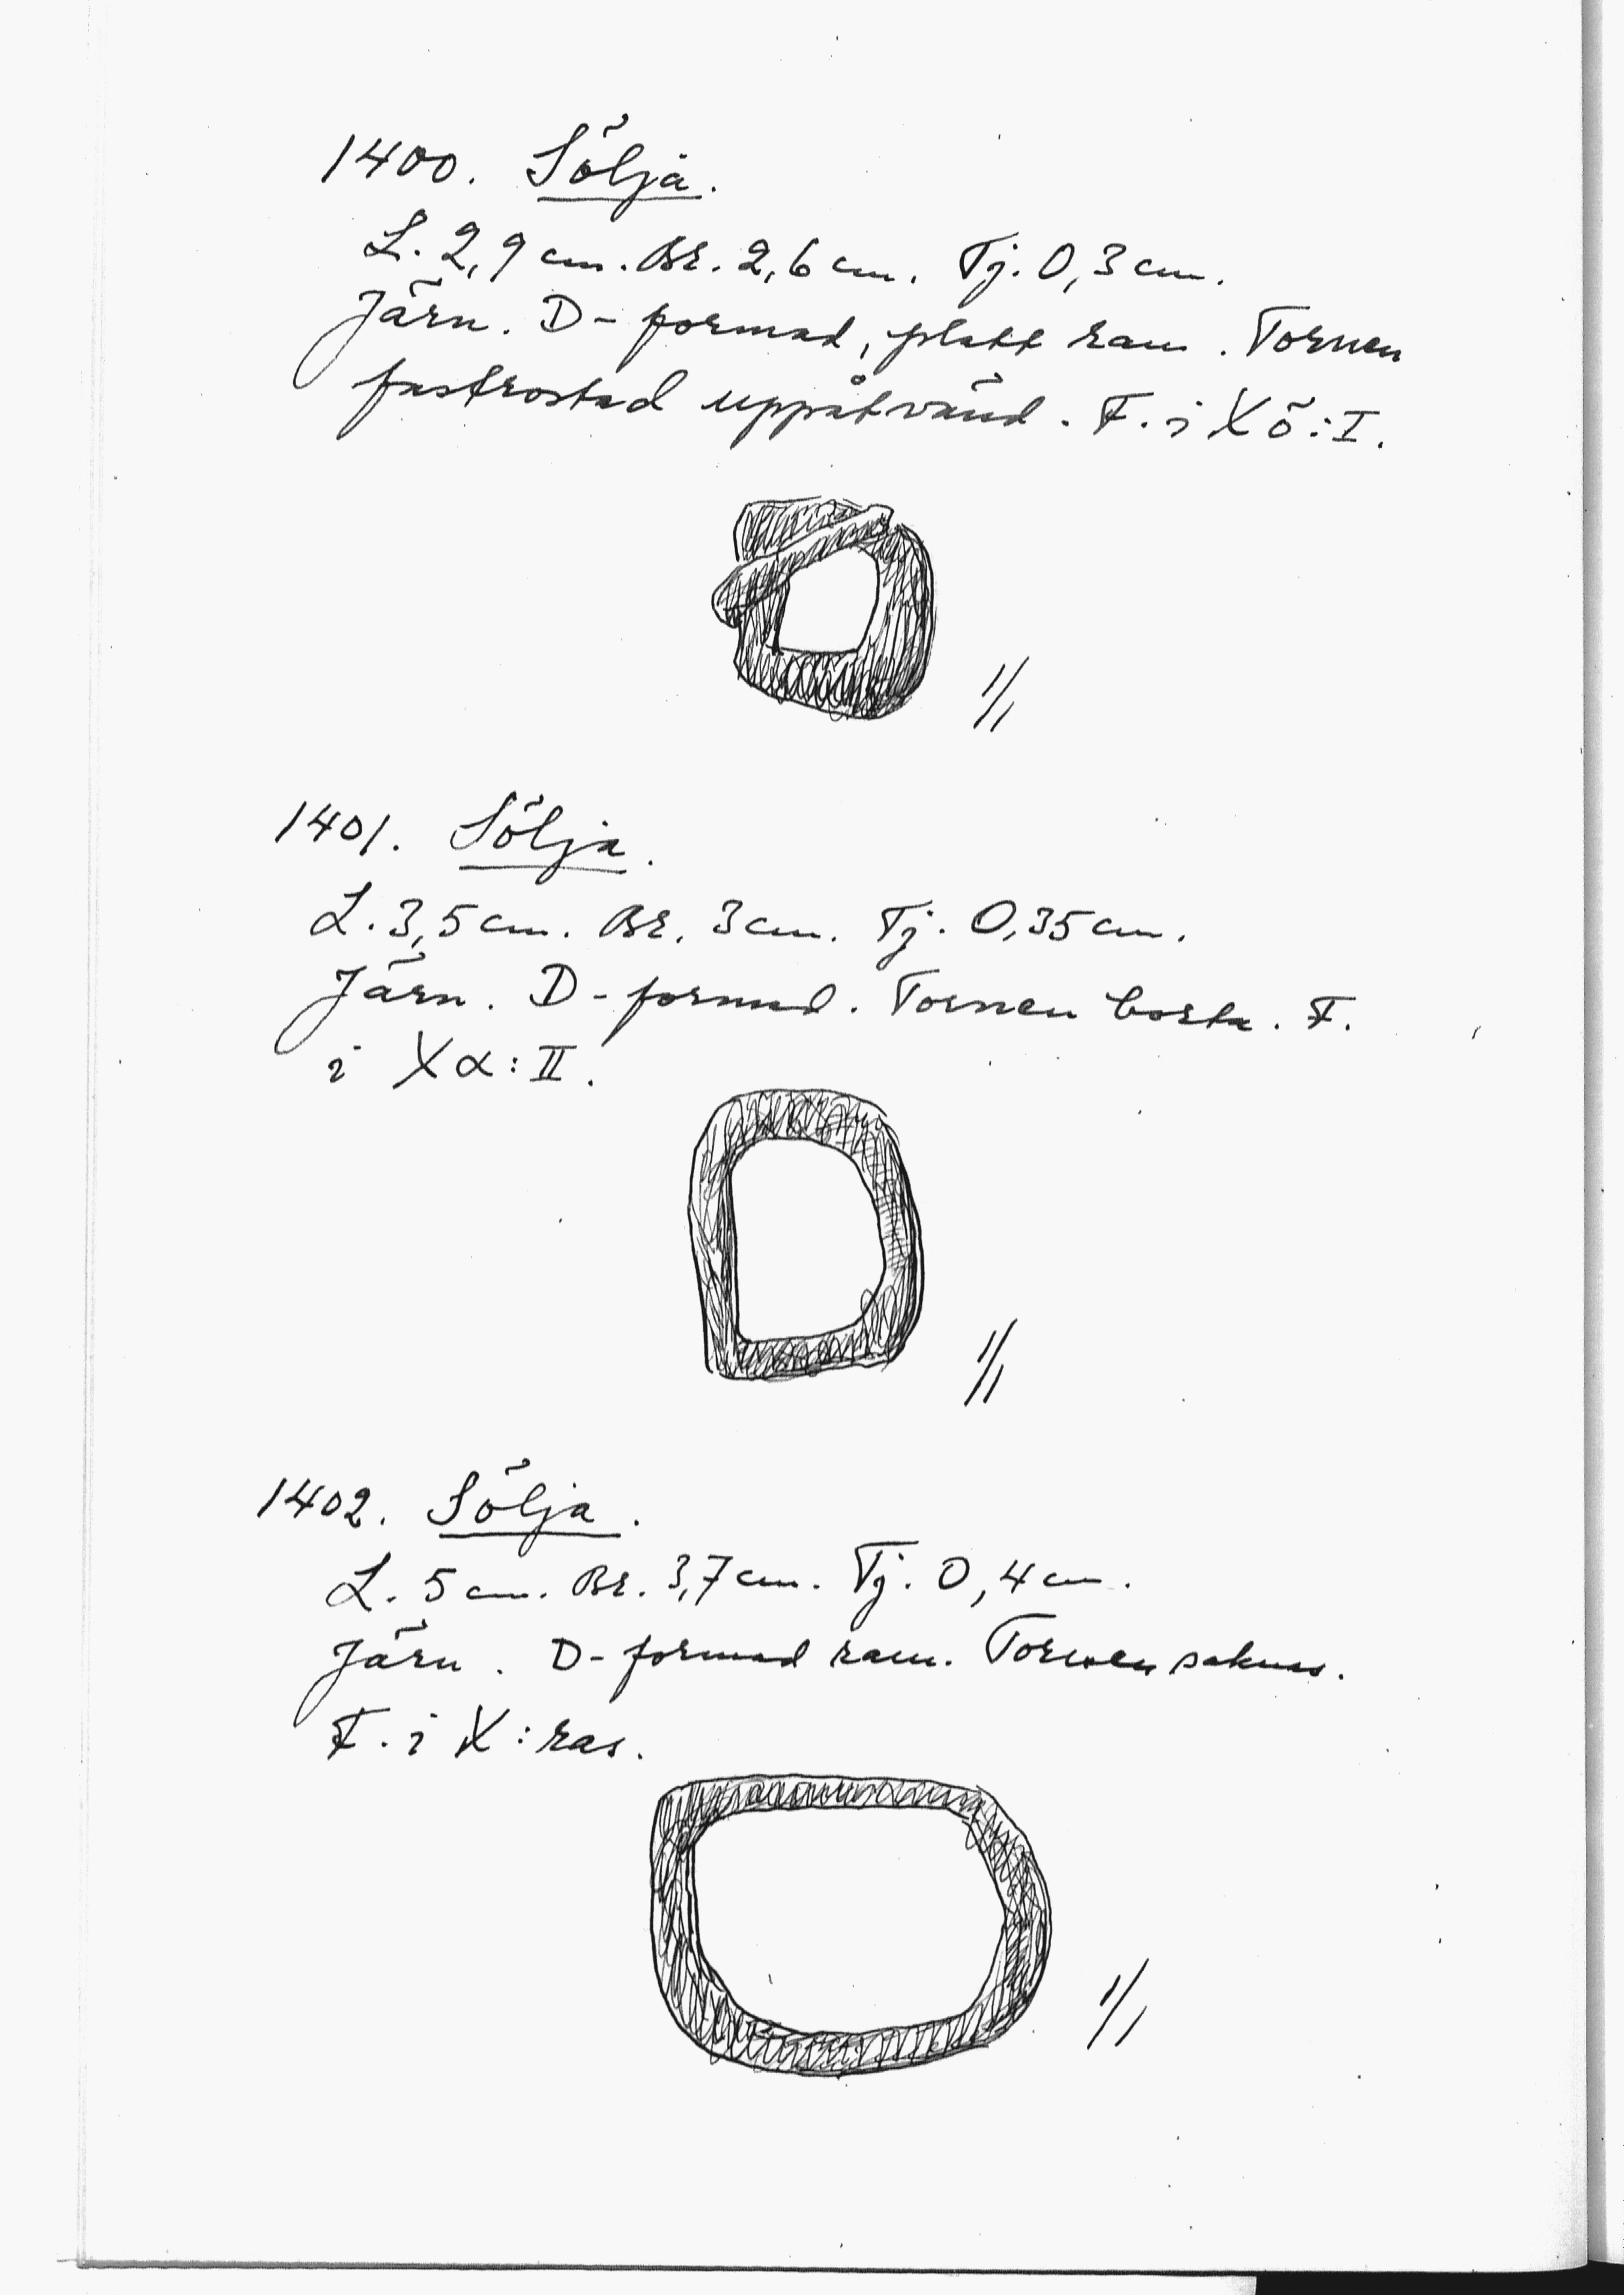 1400. Sölja.
L. 2,9 cm. Br. 2,6 cm. Tj. 0,3 cm.
Järn. D-formad, platt ram. Tornen
fastrostad uppåtvänd. F. i X ö:I.
1/1
1401. Sölja.
L. 3,5 cm. Br. 3 cm. Tj. 0,35 cm.
Järn. D-formad. Tornen borta. F.
i X α:II.
1/1
1402. Sölja.
L. 5 cm. Br. 3,7 cm. Tj. 0,4 cm.
Järn. D-formad ram. Tornen saknas.
F. i X:ras.
1/1